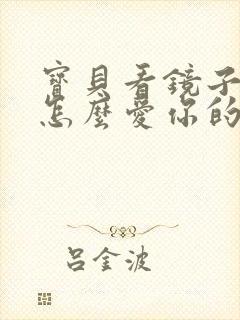 寶貝看鏡子
怎麼愛你的
吕金波